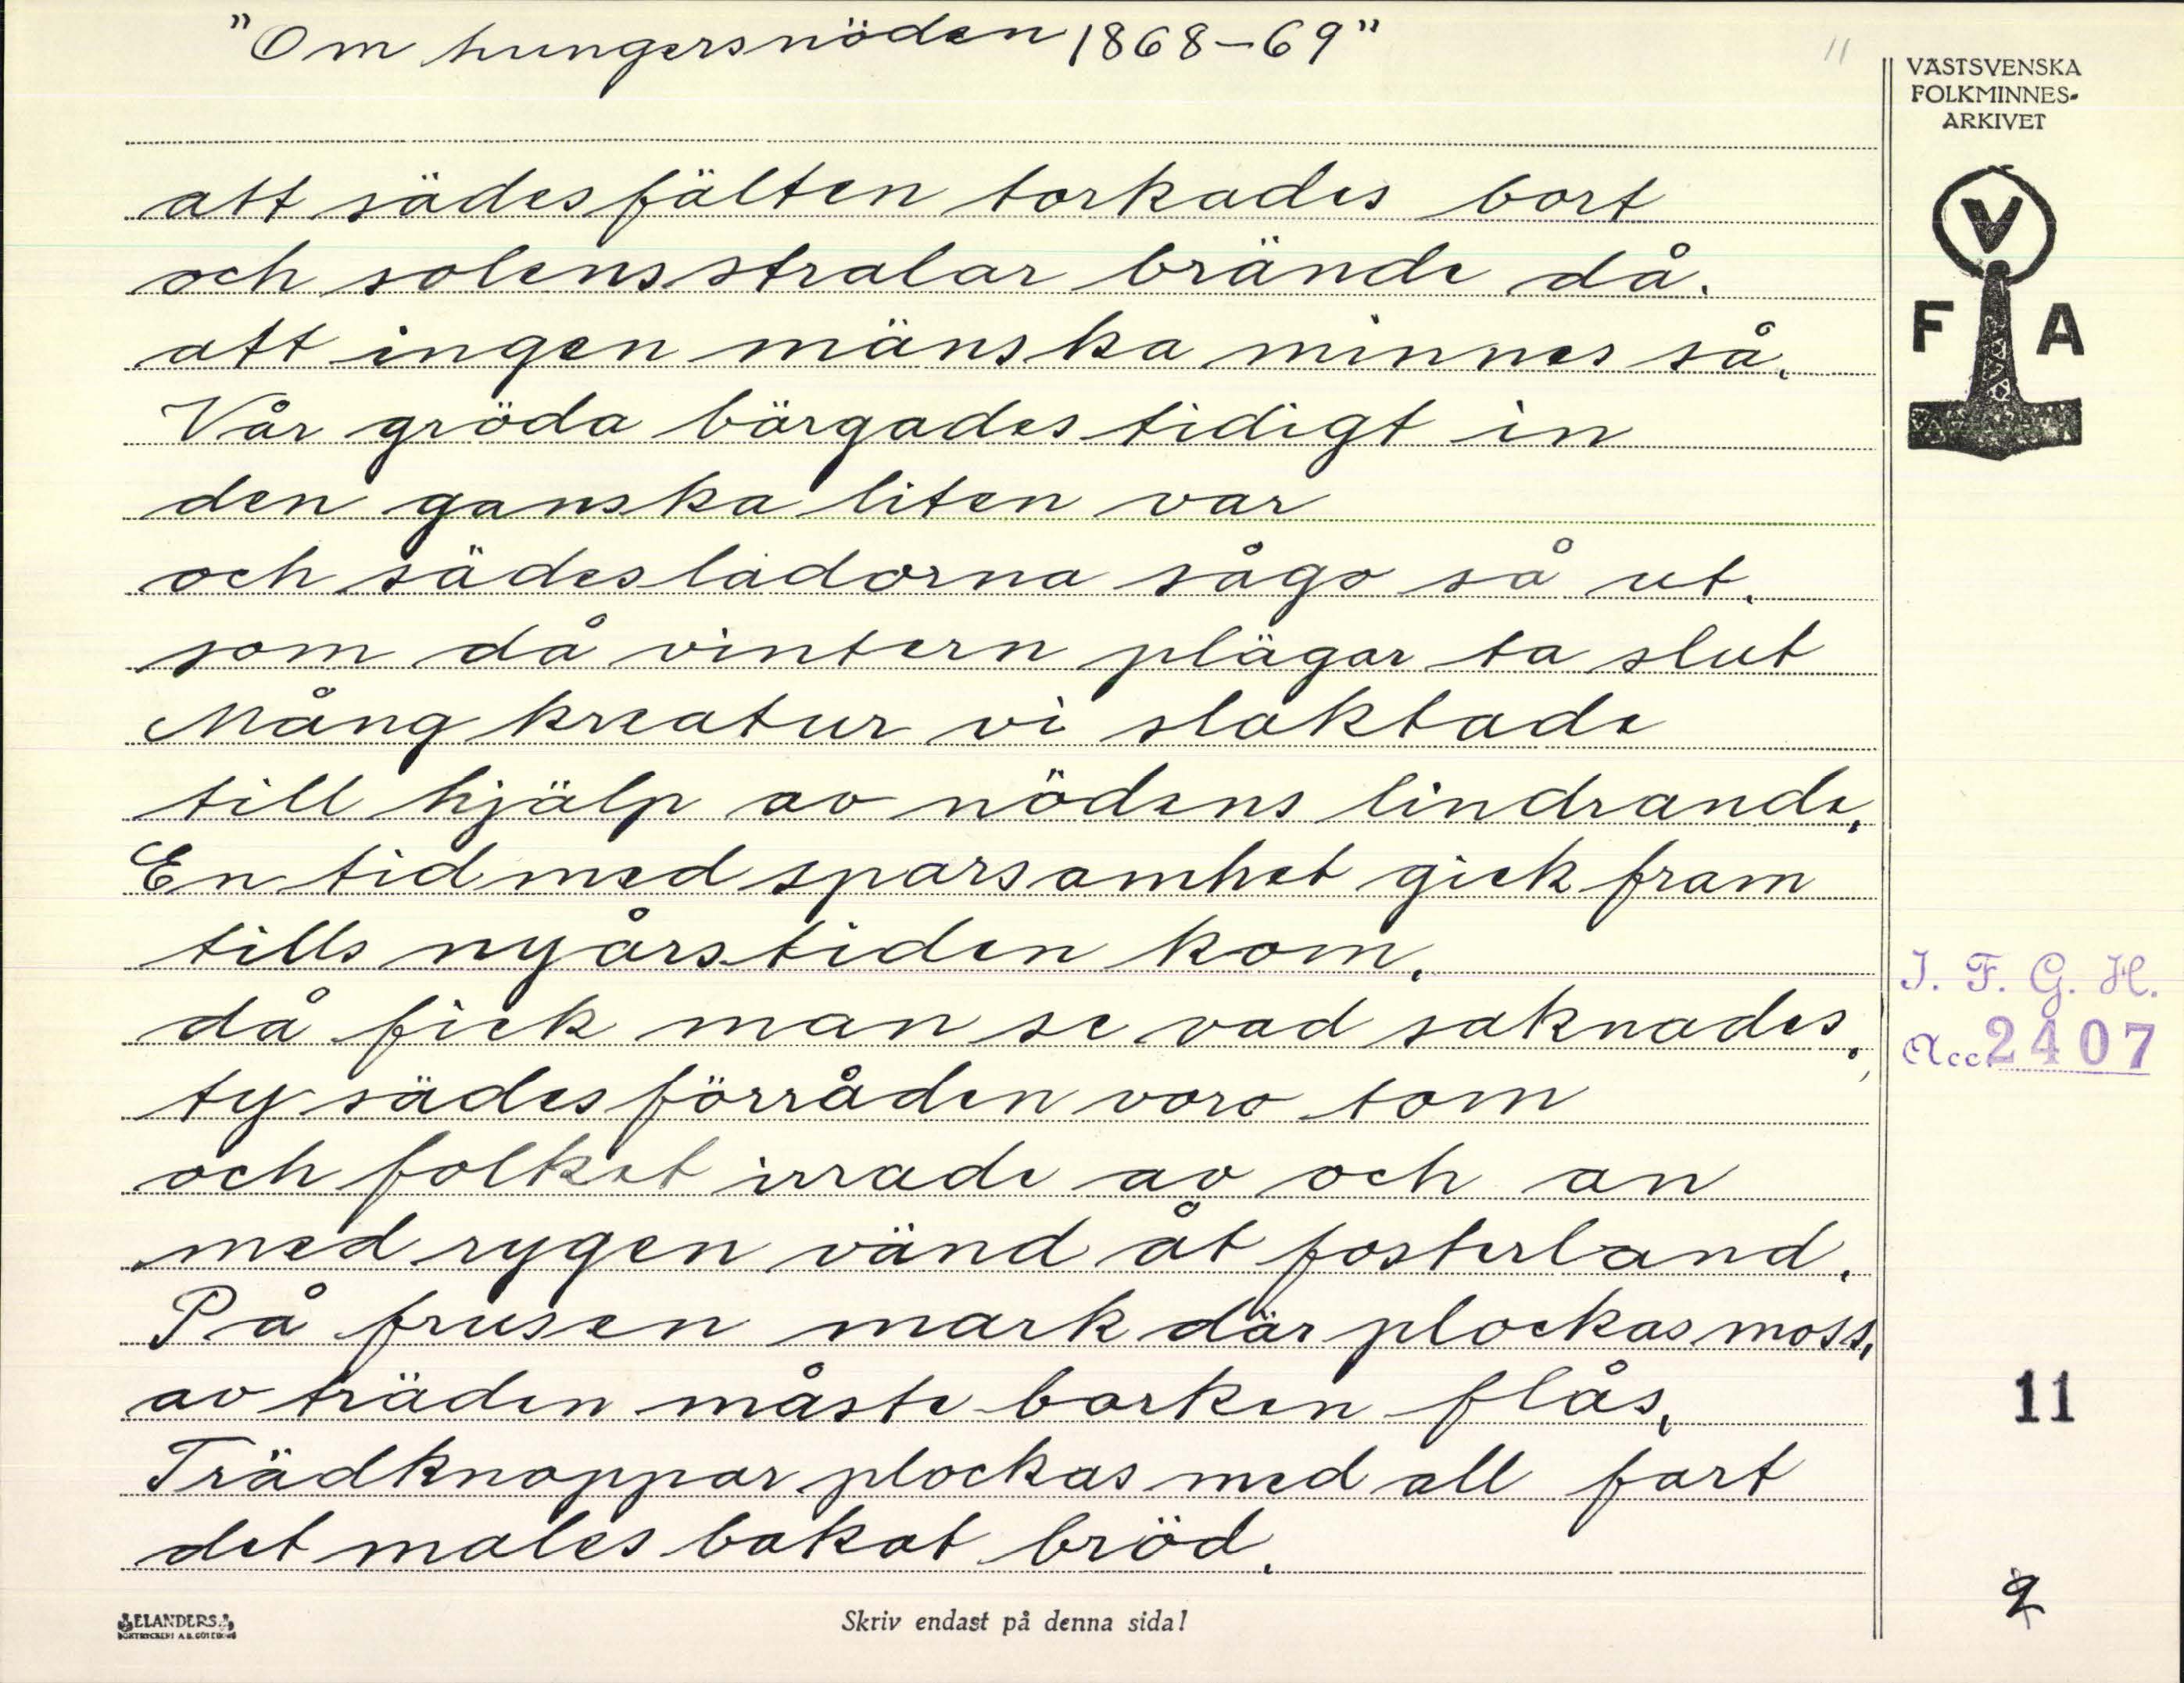 "Om hungersnöden 1868-69"
11
VÄSTSVENSKA
FOLKMINNES-
ARKIVET
V
F A
att sädesfälten torkades bort
och solens stralar brände då.
att ingen mänska minnes så.
Vår gröda bärgades tidigt in
den ganska liten var
och sädesladorna sågo så ut.
som då vintern plägar ta slut
Mång kreatur vi slaktade
till hjälp av nödens lindrande.
En tid med sparsamhet gick fram
tills nyårstiden kom.
då fick man se vad saknades,
ty sädesförråden voro tom
och folket irrade av och an
med rygen vänd åt fosterland.
På frusen mark där plockas moss,
av träden måste barken flås,
Trädknoppar plockas med all fart
det males bakat bröd.
I. F. G. H.
Acc. 2407
11
2
ELANDERS
BOKTRYCKERI A.B. GÖTEBORG
Skriv endast på denna sida!